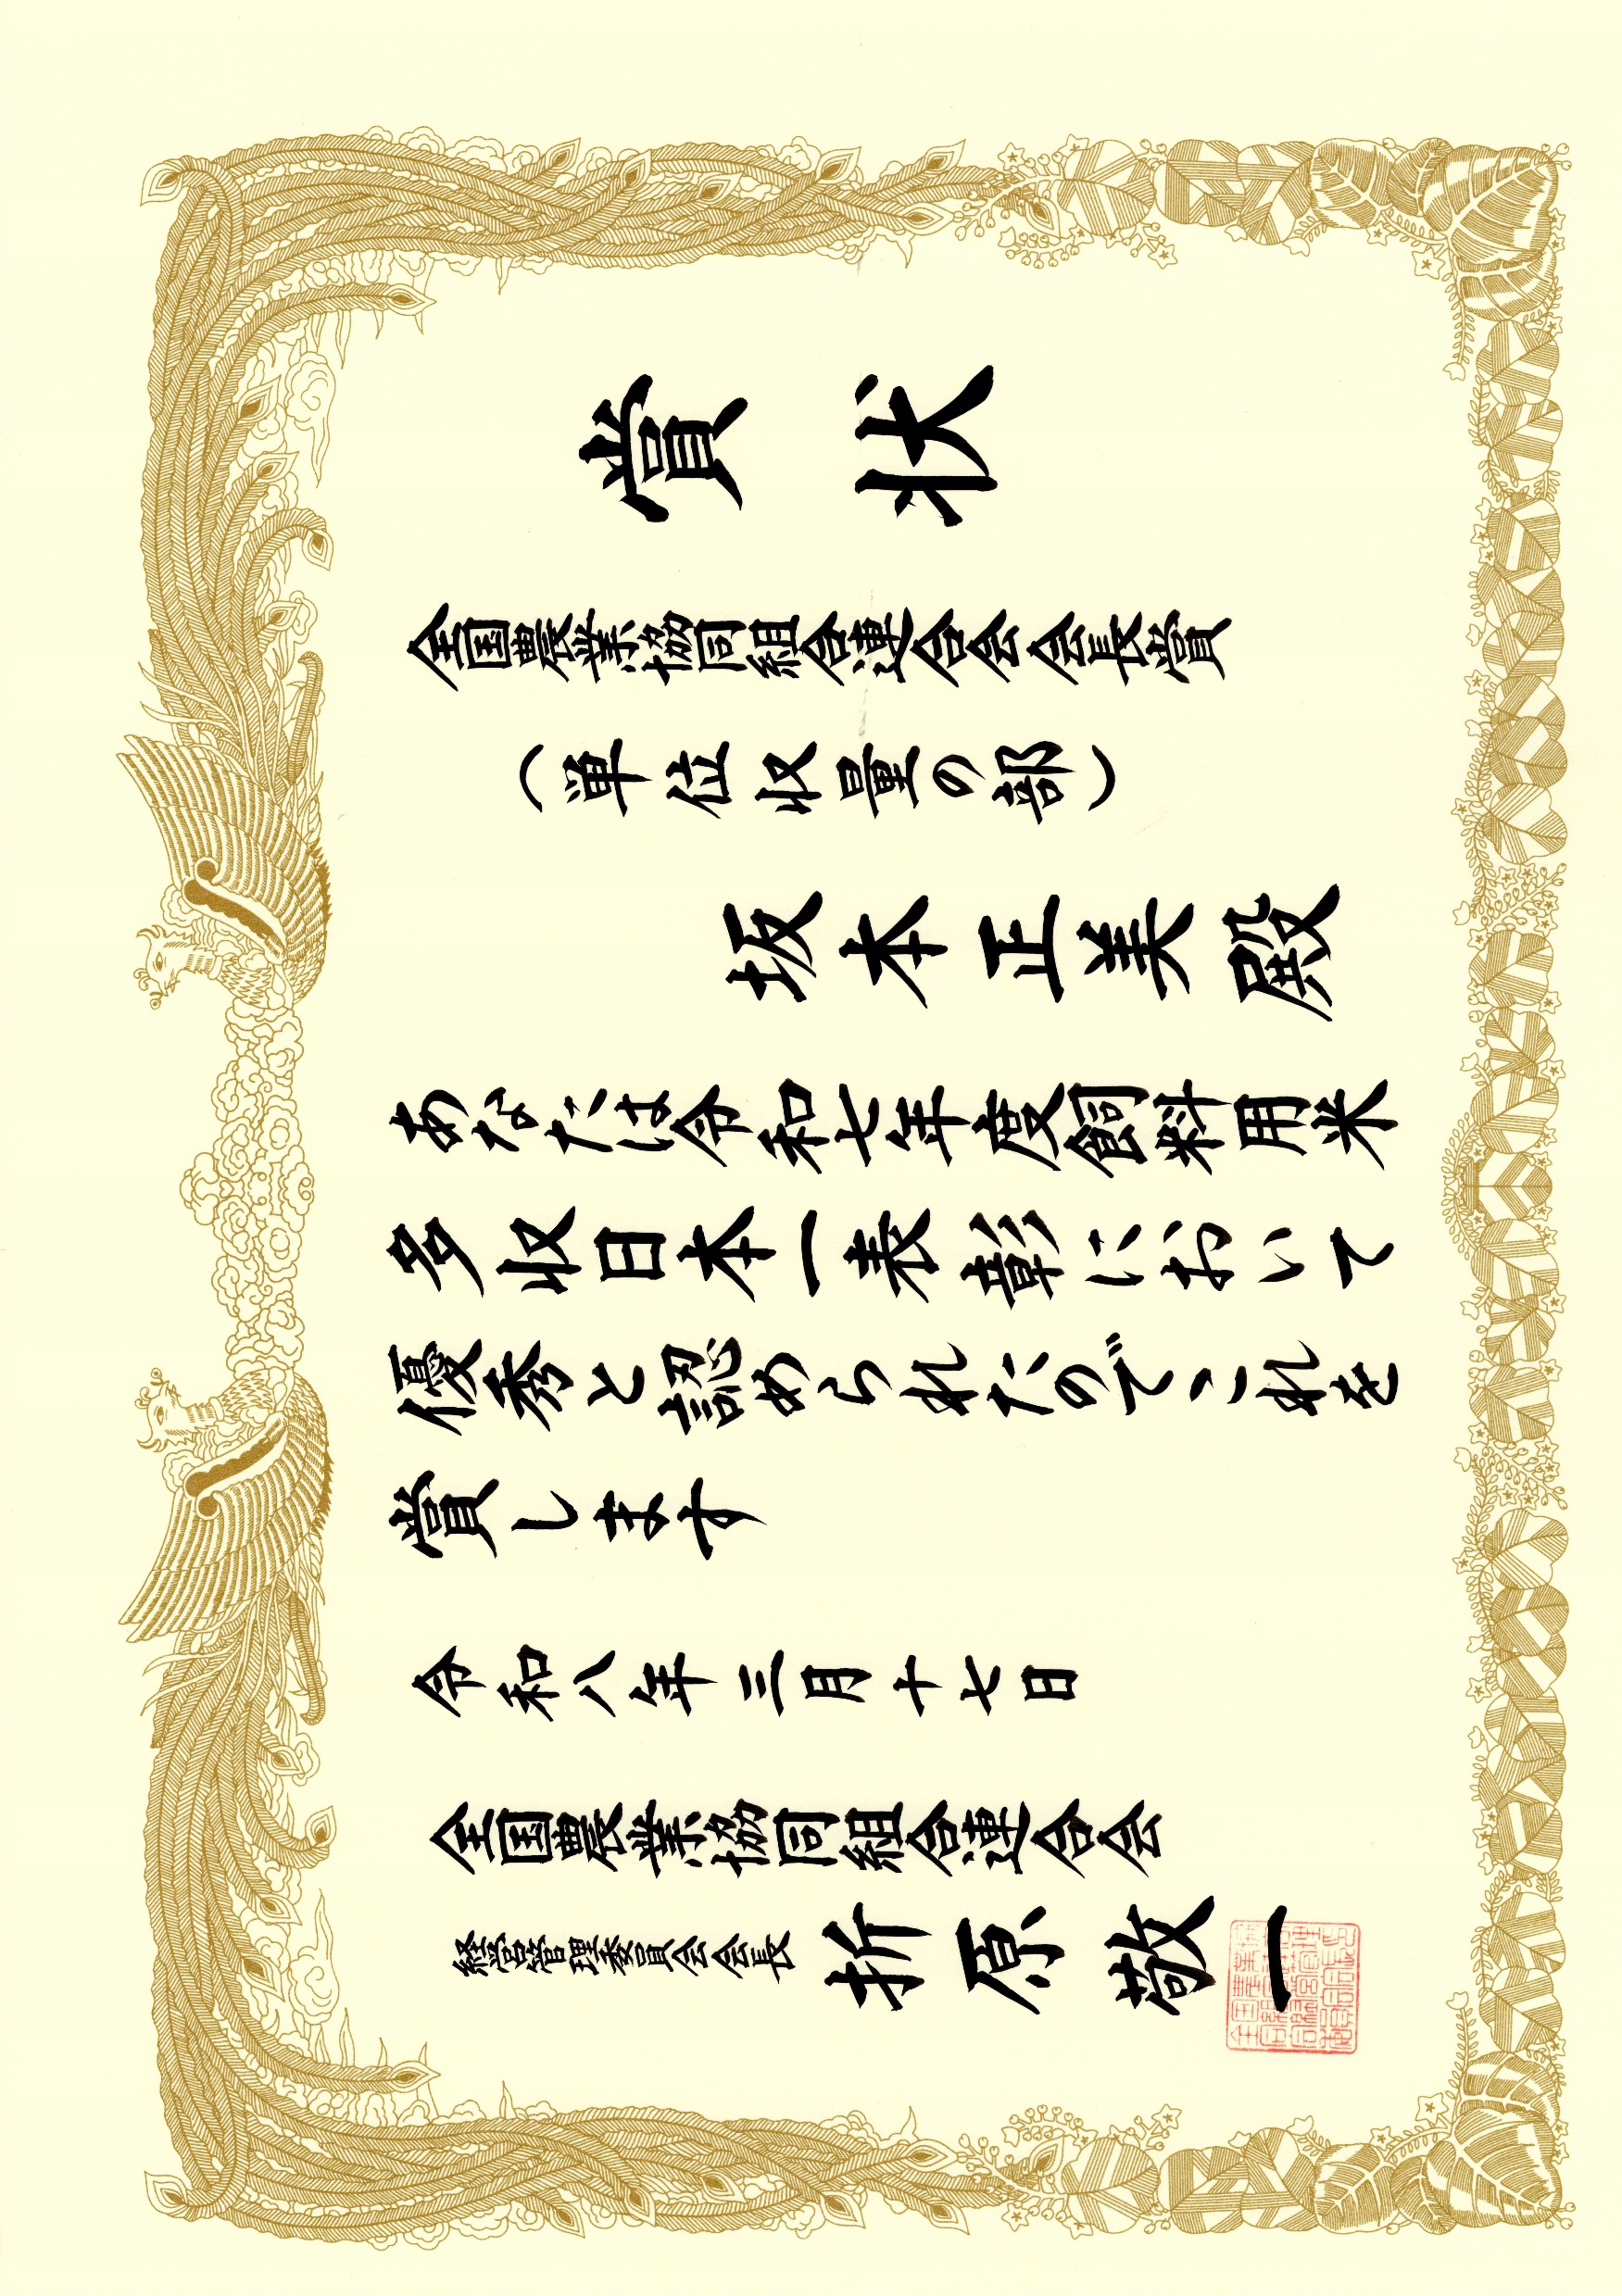 賞状
全国農業協同組合連合会会長賞
（単位収量の部）
坂本正美殿
あなたは令和七年度飼料用米
多収日本一表彰において
優秀と認められたのでこれを
賞します
令和八年三月十七日
全国農業協同組合連合会
経営管理委員会会長 折原敬一